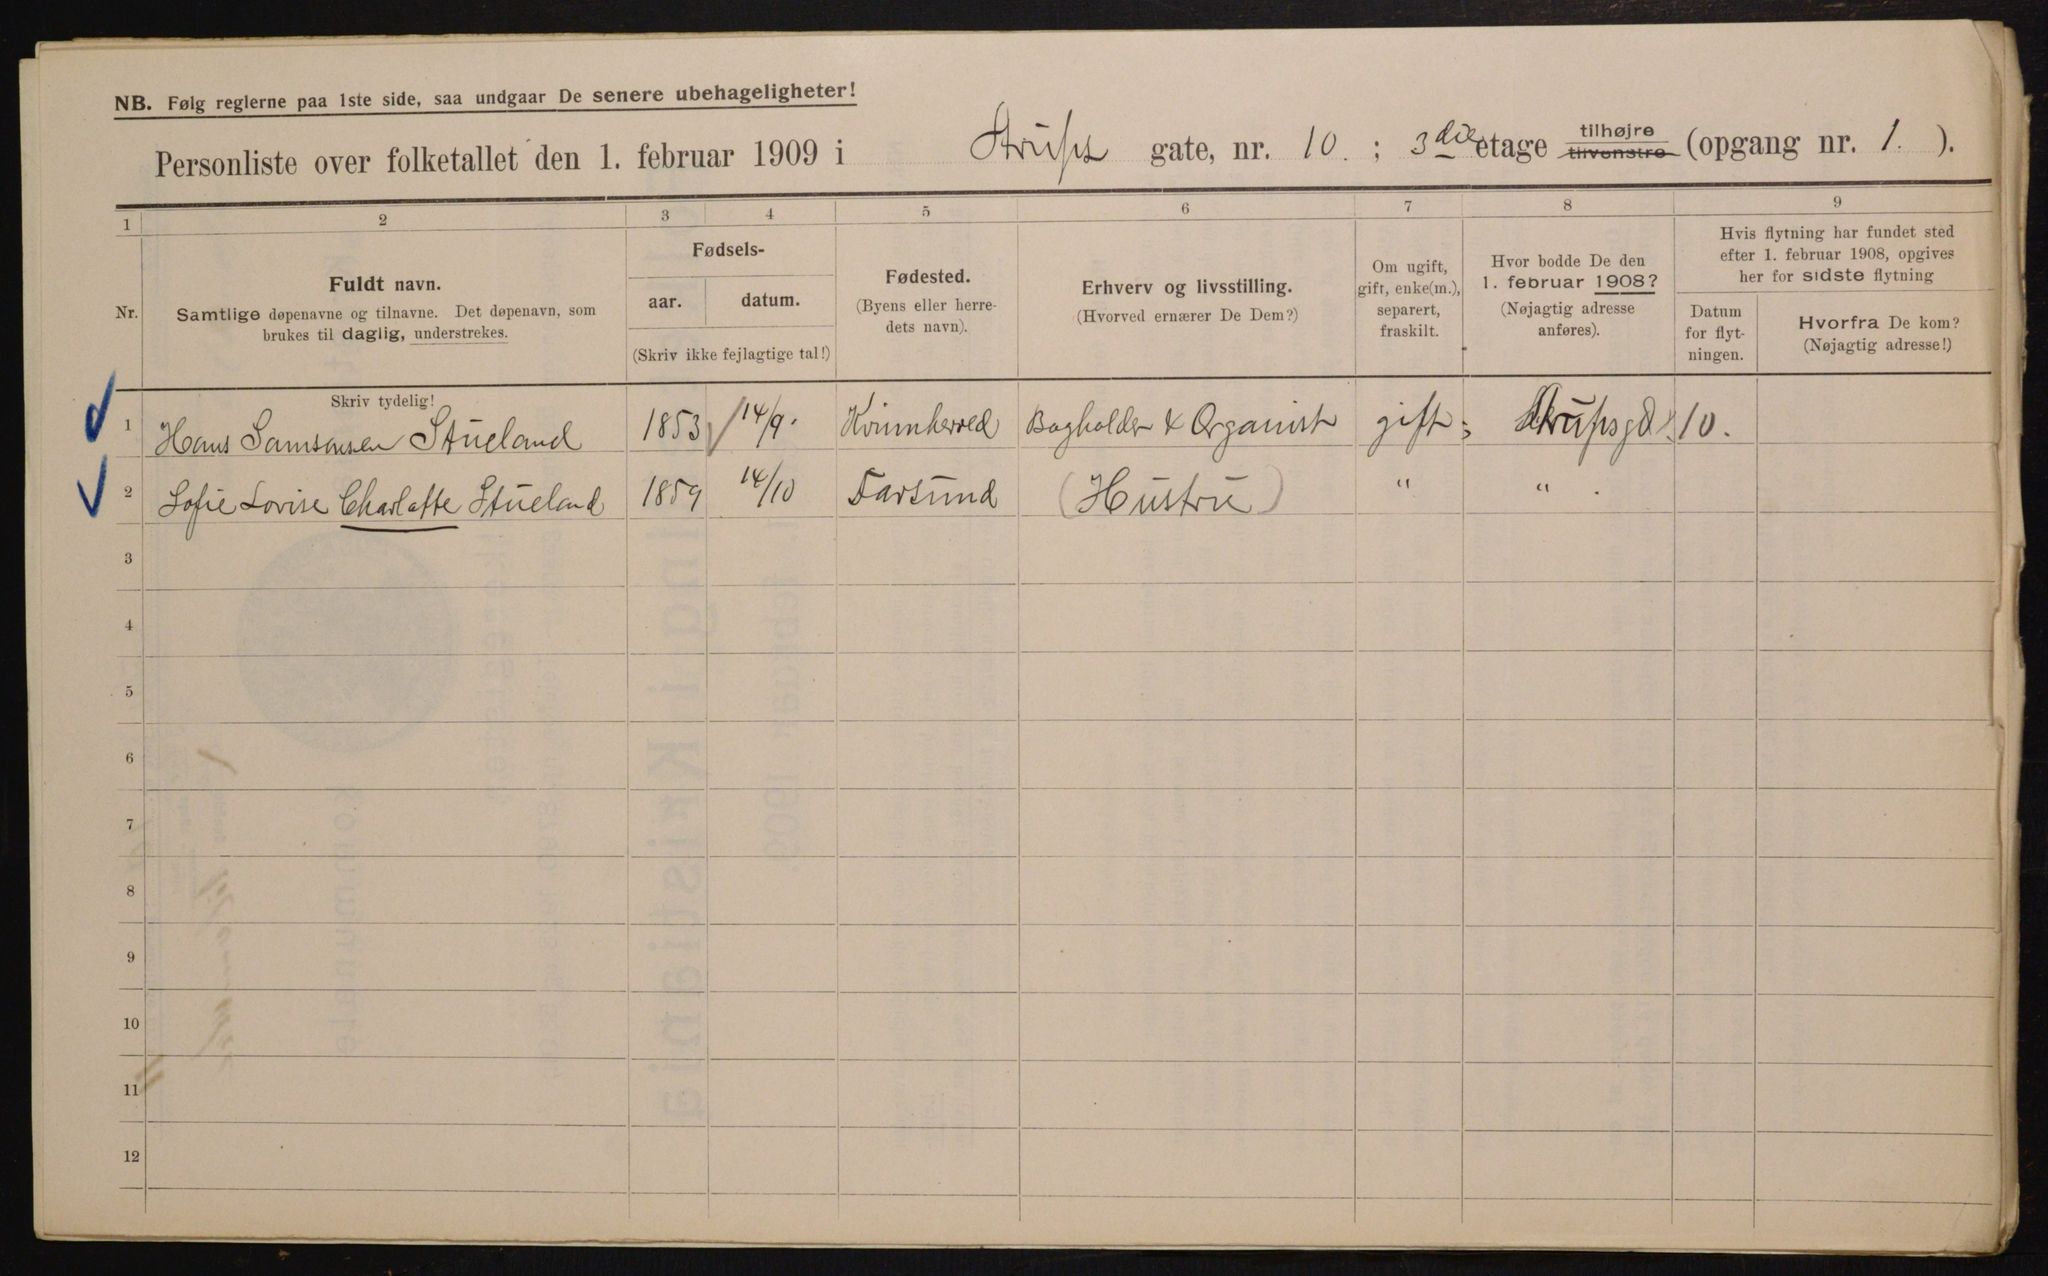 NB. Følg reglerne paa 1ste side, saa undgaar De senere ubehageligheter!
Personliste over folketallet den 1. februar 1909 i Strups gate, nr. 10. ; 3die etage tilhøjre tilvenstre (opgang nr. 1. ).
1 2 3 4 5 6 7 8 9
Nr.
Fuldt navn.
Samtlige døpenavne og tilnavne. Det døpenavn, som
brukes til daglig, understrekes.
Fødsels-
aar. datum.
(Skriv ikke fejlagtige tal!)
Fødested.
(Byens eller herre-
dets navn).
Erhverv og livsstilling.
(Hvorved ernærer De Dem?)
Om ugift,
gift, enke(m.),
separert,
fraskilt.
Hvor bodde De den
1. februar 1908?
(Nøjagtig adresse
anføres).
Hvis flytning har fundet sted
efter 1. februar 1908, opgives
her for sidste flytning
Datum
for flyt-
ningen.
Hvorfra De kom?
(Nøjagtig adresse!)
Skriv tydelig!
1 Hans Samsonsen Stueland 1853 14/9. Kvinnherred Bogholder & Organist gift Strupsgd. 10.
2 Sofie Lovise Charlotte Stueland 1859 14/10 Farsund (Hustru) " " .
3
4
5
6
7
8
9
10
11
12